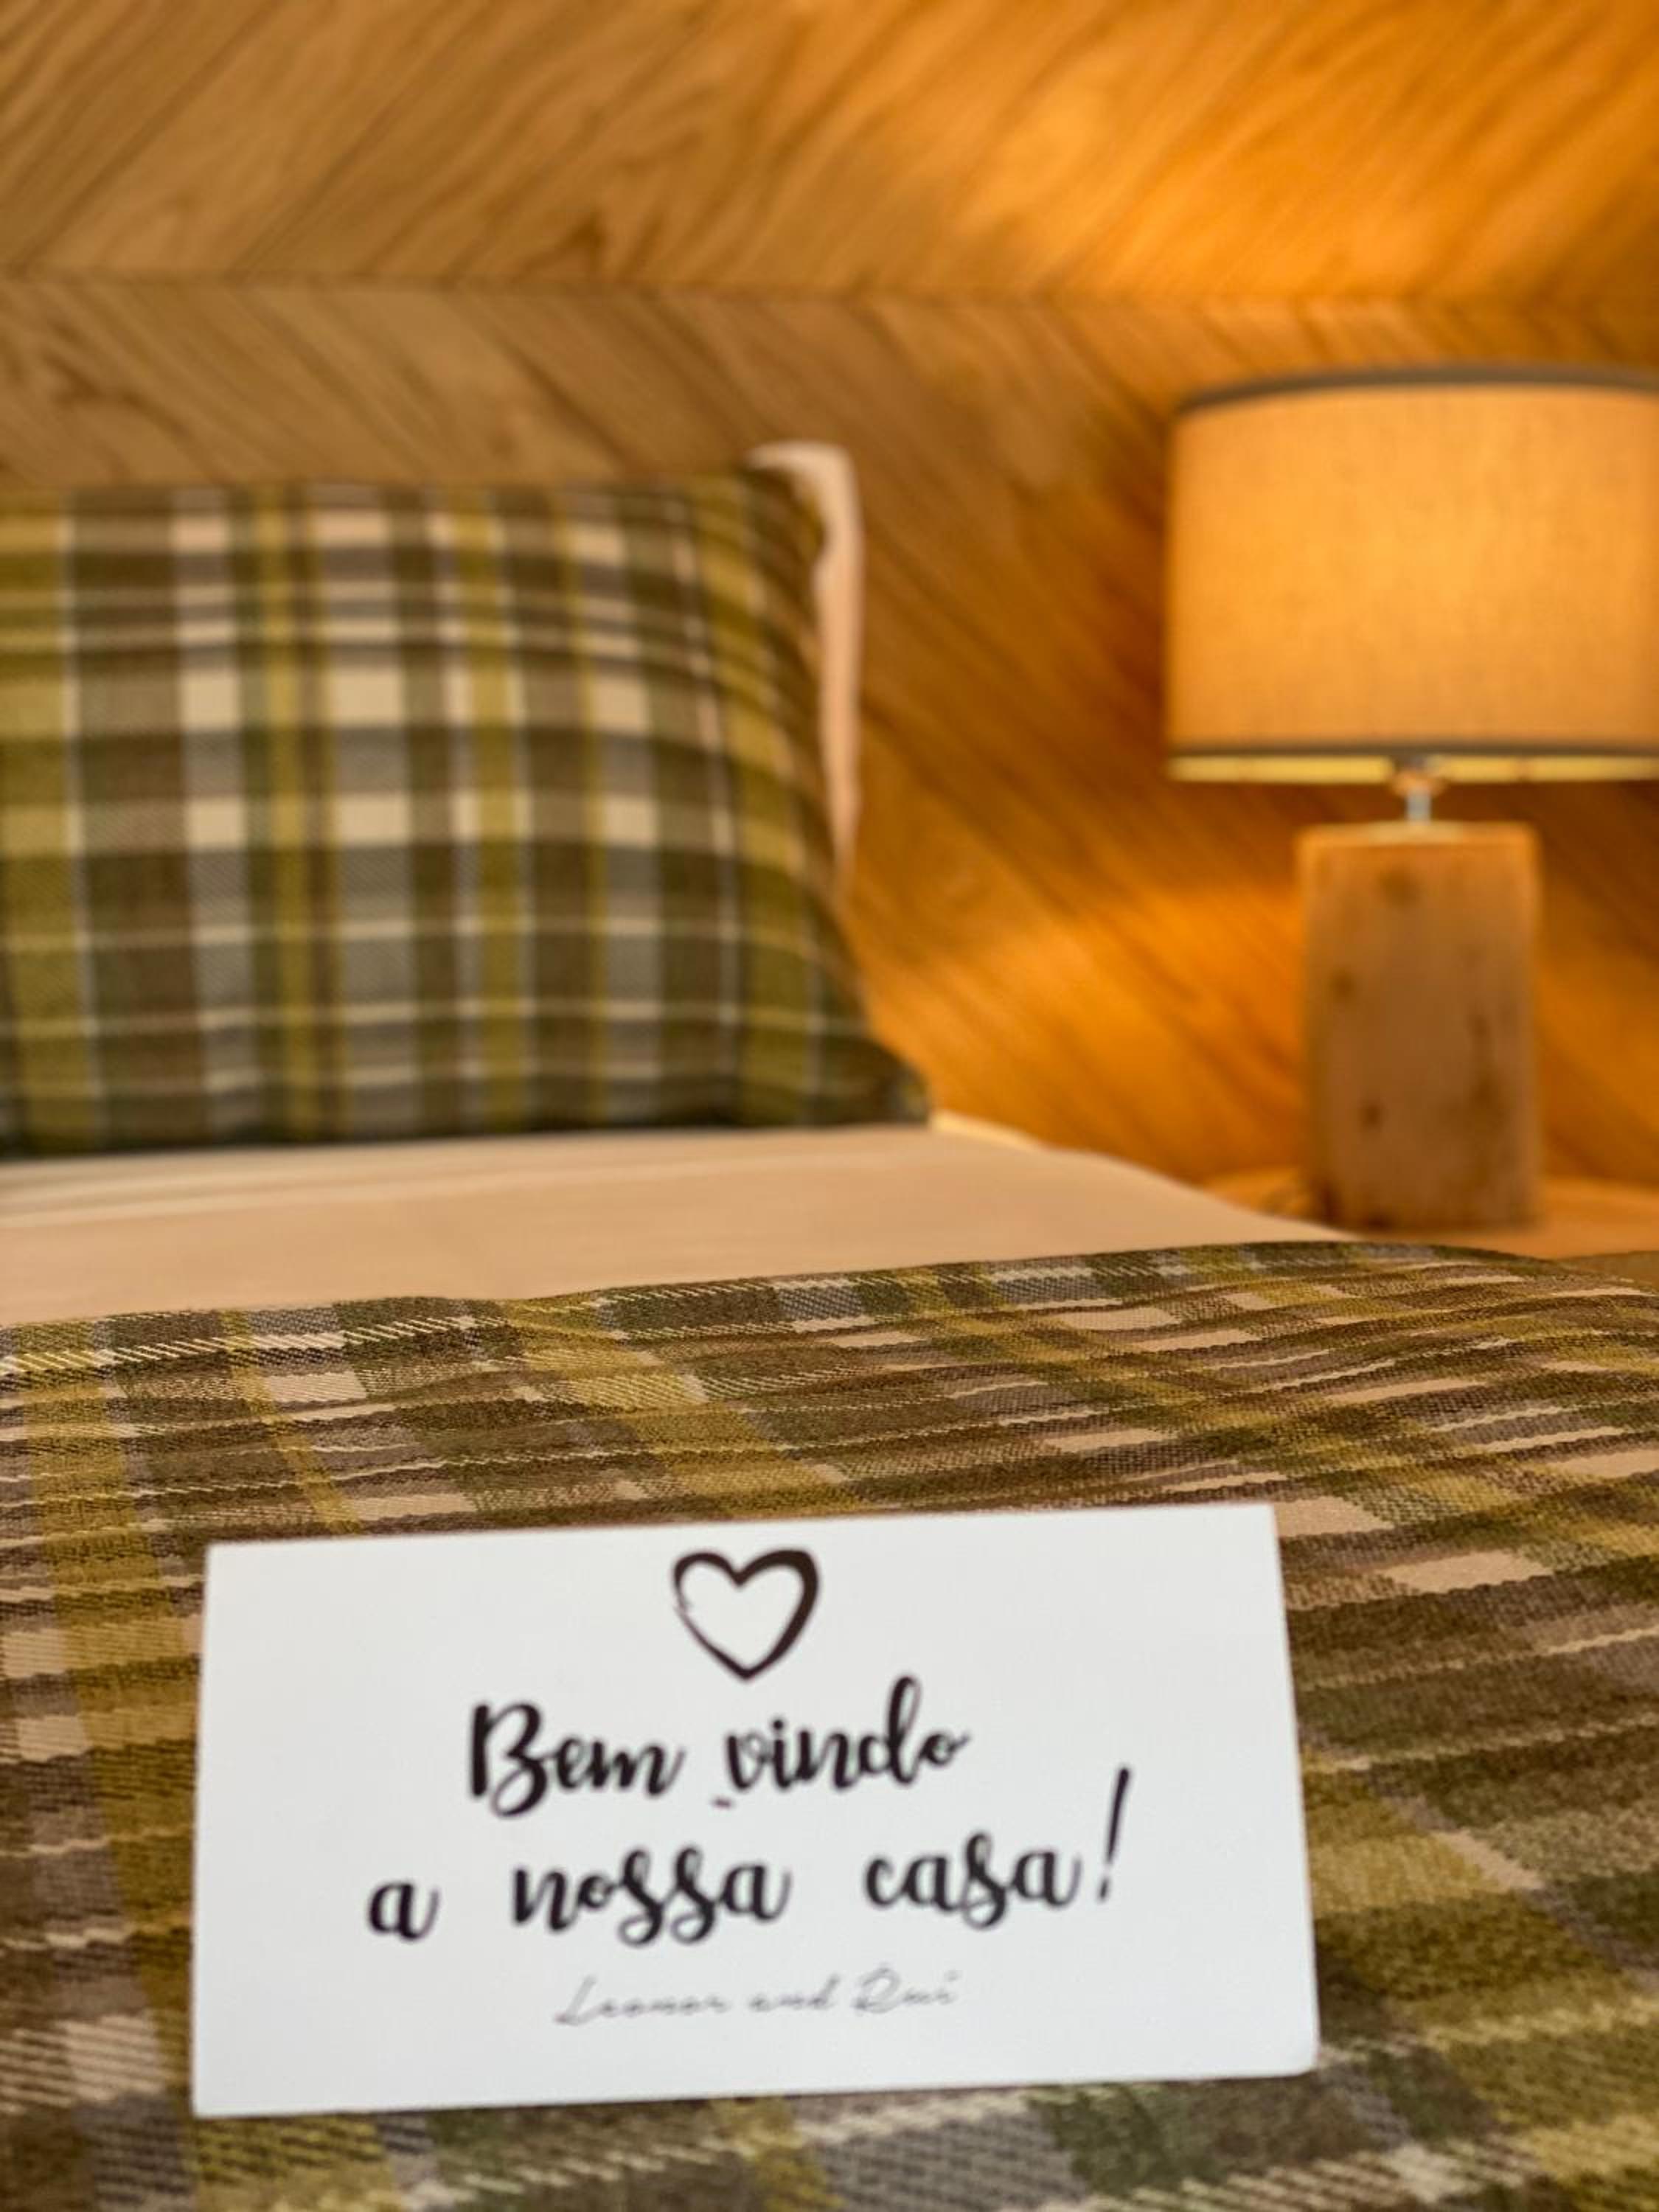 Bem vindo
a nossa casa!
Leonor and Rui